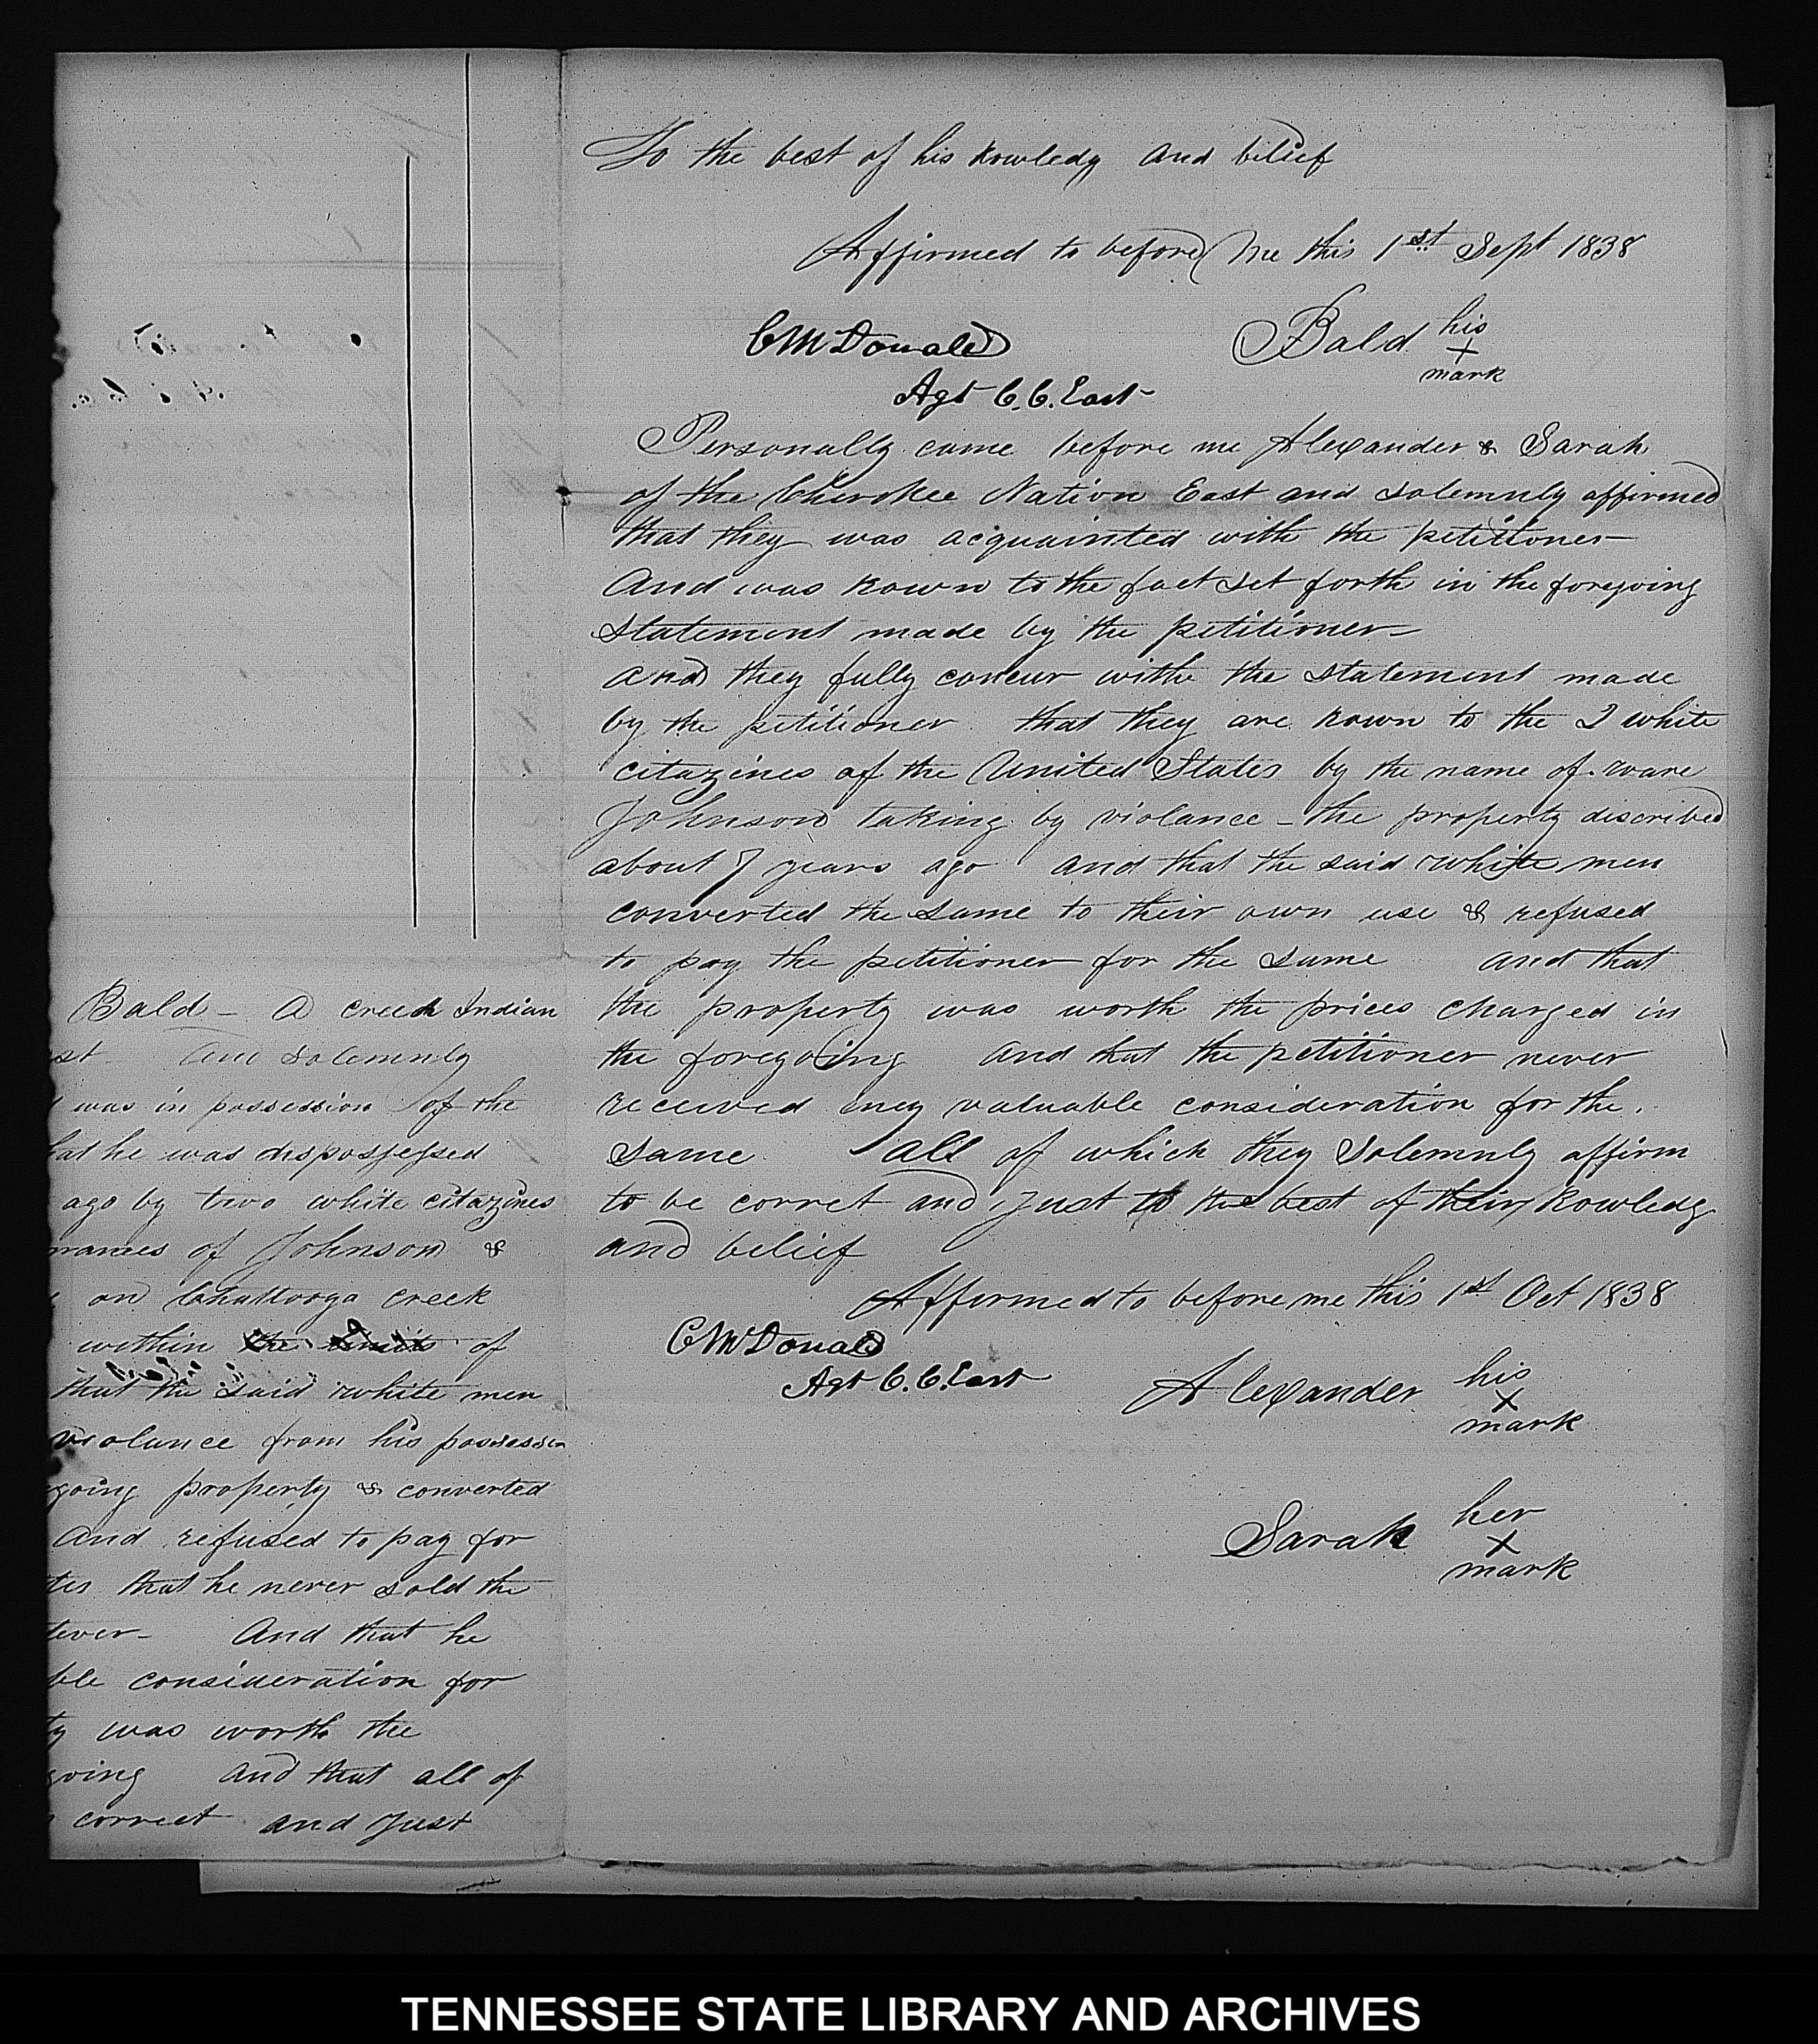 Bald - A creek Indian
st and Solemnly
was in possession of the
hat he was dispossessed
ago by two white citazines
names of Johnson &
on Chattooga creek
within the limits of
that the said white men
violance from his possession
going property & converted
and refused to pay for
tes that he never sold the
tever - And that he
ble consideration for
ty was worth the
going and that all of
correct and Just
To the best of his kowledg and belief
Affirmed to before me this 1st Sept 1838
CMcDonald
Bald his
x
mark
Agt C.C. East
Personally came before me Alexander & Sarah
of the Cherokee Nation East and solemnly affirmed
that they was acquainted with the petitioner
And was kown to the fact set forth in the foregoing
statement made by the petitioner
and they fully concur with the statement made
by the petitioner that they are kown to the 2 white
citazines of the United States by the name of ware
Johnson taking by violance - the property discribed
about 7 years ago and that the said white men
converted the same to their own use & refused
to pay the petitioner for the same and that
the property was worth the prices charged in
the foregoing and that the petitioner never
received any valuable consideration for the
same all of which they Solemnly affirm
to be corret and just to the best of their kowledg
and belief
Affirmed to before me this 1st Oct 1838
CMcDonald
Agt C.C. East
Alexander his
x
mark
Sarah her
x
mark
TENNESSEE STATE LIBRARY AND ARCHIVES